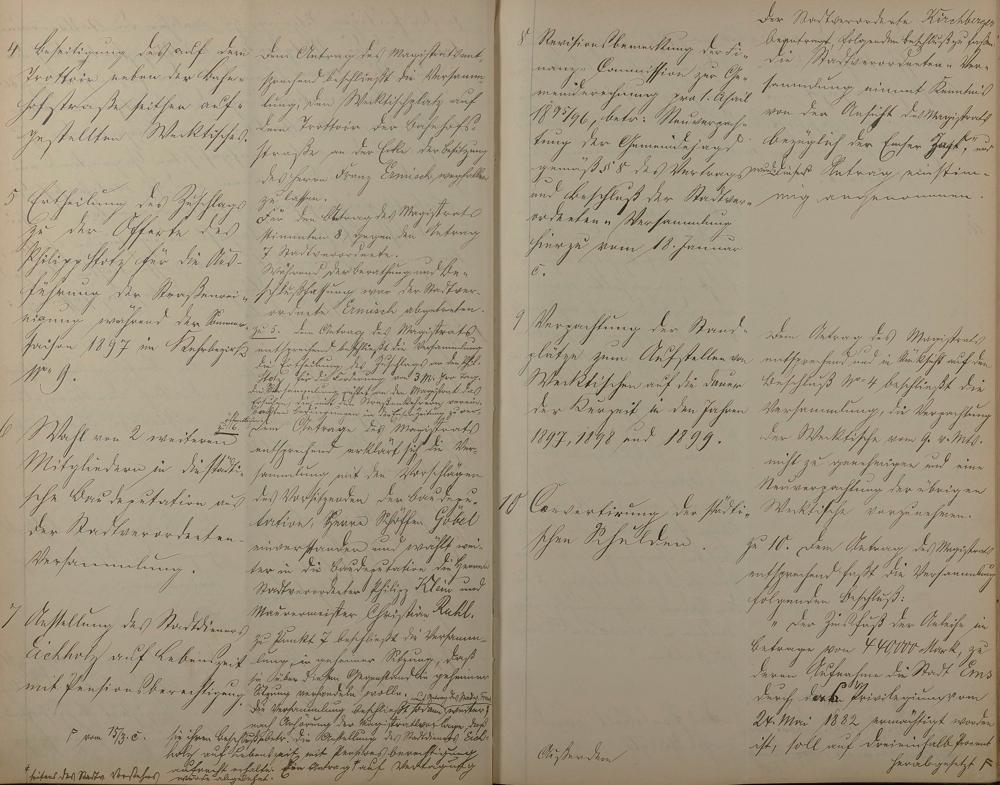 4 Beseitigung des auf dem
Trottoir neben der Bahn-
hofstraße seither auf-
gestellten Werktisches.
dem Antrag des Magistrats ent-
sprechend beschließt die Versamm-
lung, den Werktischplatz auf
dem Trottoir der Bahnhof-
straße an der Ecke der Besitzung
des Herrn Franz Ermisch wegfallen
zu lassen.
Für den Antrag des Magistrats
stimmten 8, gegen den Antrag
7 Stadtverordnete.
Während der Berathung und Be-
schlußfassung war der Stadtver-
ordnete Ermisch abgetreten.
5 Ertheilung des Zuschlags
zu der Offerte des
Philipp Stotz für die Aus-
führung der Straßenrei-
nigung während der Sommer-
saison 1897 im Kehrbezirk
No 9.
zu 5. dem Antrag des Magistrats
entsprechend beschließt die Versammlung
die Ertheilung des Zuschlags an den Phil.
Stotz für die Forderung von 3 M. pro Tag.
6 Wahl von 2 weiteren
Mitgliedern in die städti-
sche Baudeputation aus
der Stadtverordneten-
Versammlung.
dem Antrage des Magistrats
entsprechend erklärt sich die Ver-
sammlung mit den Vorschlägen
des Vorsitzenden der Baudepu-
tation, Herrn Schöffen Göbel
einverstanden und wählt wei-
ter in die Baudeputation die Herren
Stadtverordneter Philipp Klein und
Maurermeister Christian Ruhl.
7 Anstellung des Stadtdieners
Eichholz auf Lebenszeit
mit Pensionsberechtigung
zu Punkt 7 beschließt die Versamm-
lung, in geheimer Sitzung, daß
sie über diesen Gegenstand in geheimer
Sitzung verhandeln wolle.
Die Versammlung beschließt sodann
nach Anhörung der Magistratsvorlage, daß
sie ihren Beschluß betr. die Anstellung des Stadtdieners Eich-
holz auf Lebenszeit mit Pensionsberechtigung
aufrecht erhalte. Ein Antrag auf Vertagung
wurde abgelehnt.
vom 15/3. c.
seitens des Stadtv. Vorstehers
8 Revisionsbemerkung der Fi-
nanz-Commission zur Ge-
meinderechnung pro 1. April
1895/96, betr: Neuverpach-
tung der Gemeindejagd
gemäß § 8 des Vertrags
und Beschluß der Stadtver-
ordneten-Versammlung
hierzu vom 18. Januar
c.
Der Stadtverordnete Kirchberger
beantragt, folgenden Beschluß zu fassen:
Die Stadtverordneten-Ver-
sammlung nimmt Kenntnis
von der Ansicht des Magistrats
bezüglich der Emser Jagd, und
wurde dieser Antrag einstim-
mig angenommen.
9 Verpachtung der Stand-
plätze zum Aufstellen von
Werktischen auf die Dauer
der Kurzeit in den Jahren
1897, 1898 und 1899.
dem Antrag des Magistrats
entsprechend und in Rücksicht auf den
Beschluß No 4 beschließt die
Versammlung, die Verpachtung
der Werktische vom 9. v. Mts.
nicht zu genehmigen und eine
Neuverpachtung der übrigen
Werktische vorzunehmen.
10 Convertirung der städti-
schen Schulden.
zu 10. dem Antrag des Magistrats
entsprechend faßt die Versammlung
folgenden Beschluß:
"Der Zinsfuß der Anleihe im
Betrage von 440000 Mark, zu
deren Aufnahme die Stadt Ems
durch das Privilegium vom
24. Mai 1882 ermächtigt worden
ist, soll auf dreieinhalb Procent
herabgesetzt
Außerdem